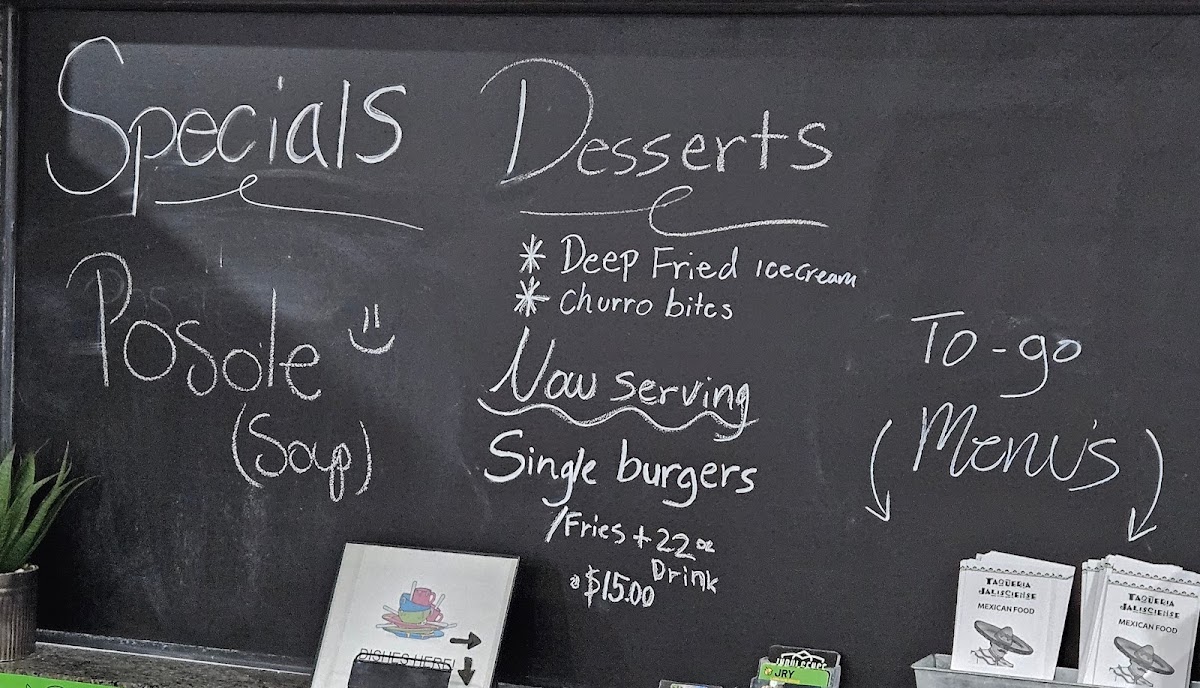 Specials
Posole
(Soup)
Desserts
* Deep Fried icecream
* Churro bites
Now serving
Single burgers
/Fries + 22 oz
Drink
$15.00
To-go
Menu's
DISHES HERE!
TAQUERIA
JALISCIENSE
MEXICAN FOOD
TAQUERIA
JALISCIENSE
MEXICAN FOOD
INDULGENCE
JRY